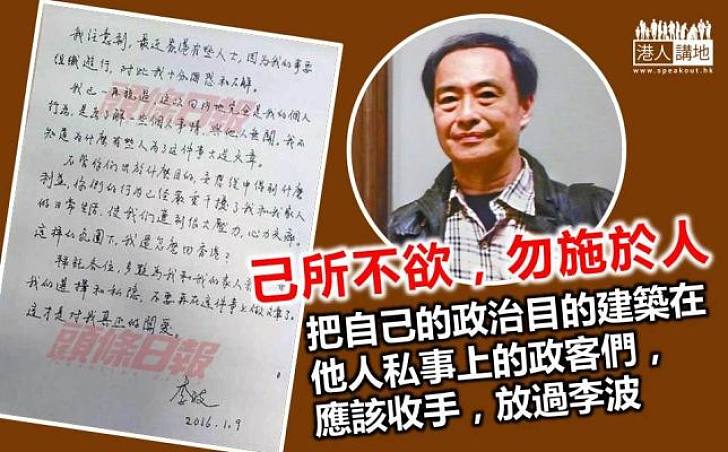 我注意到，最近香港有些人士，因为我的事要
組織遊行，对此我十分困惑和不解。
我已一再説過，这次回内地完全是我的個人
行為，是為了解一些個人事情，與他人無關。我不
知道为什么有些人為了这件事大造文章。
不管你们出於什麼目的，妄想從中得到什麼
利益，你們的行为已经嚴重干擾了我和我家人
的日常生活，使我们遭到极大壓力，心力交瘁。
这样的氛圍下，我还怎麼回香港？
拜託各位，多點为我和我的家人
我的選擇和私隱，不要再在这件事上做文章了。
这才是对我真正的關愛。
李波
2016.1.9
頭條日報
頭條日報
港人講地
www.speakout.hk
己所不欲，勿施於人
把自己的政治目的建築在
他人私事上的政客們，
應該收手，放過李波